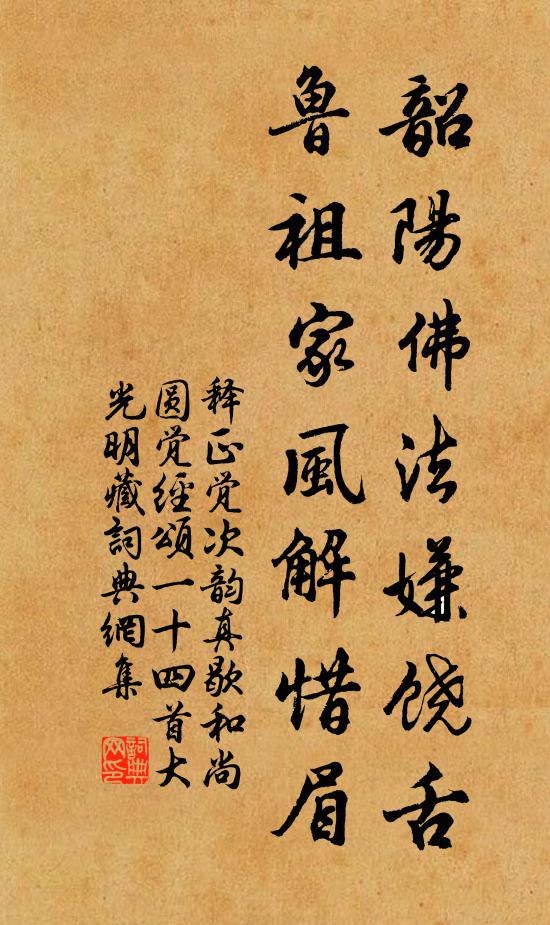 韶陽佛法嫌饶舌
魯祖家風解惜眉
释正觉次韵真歇和尚
圆觉經頌一十四首大
光明藏詞典網集
詞典
网印